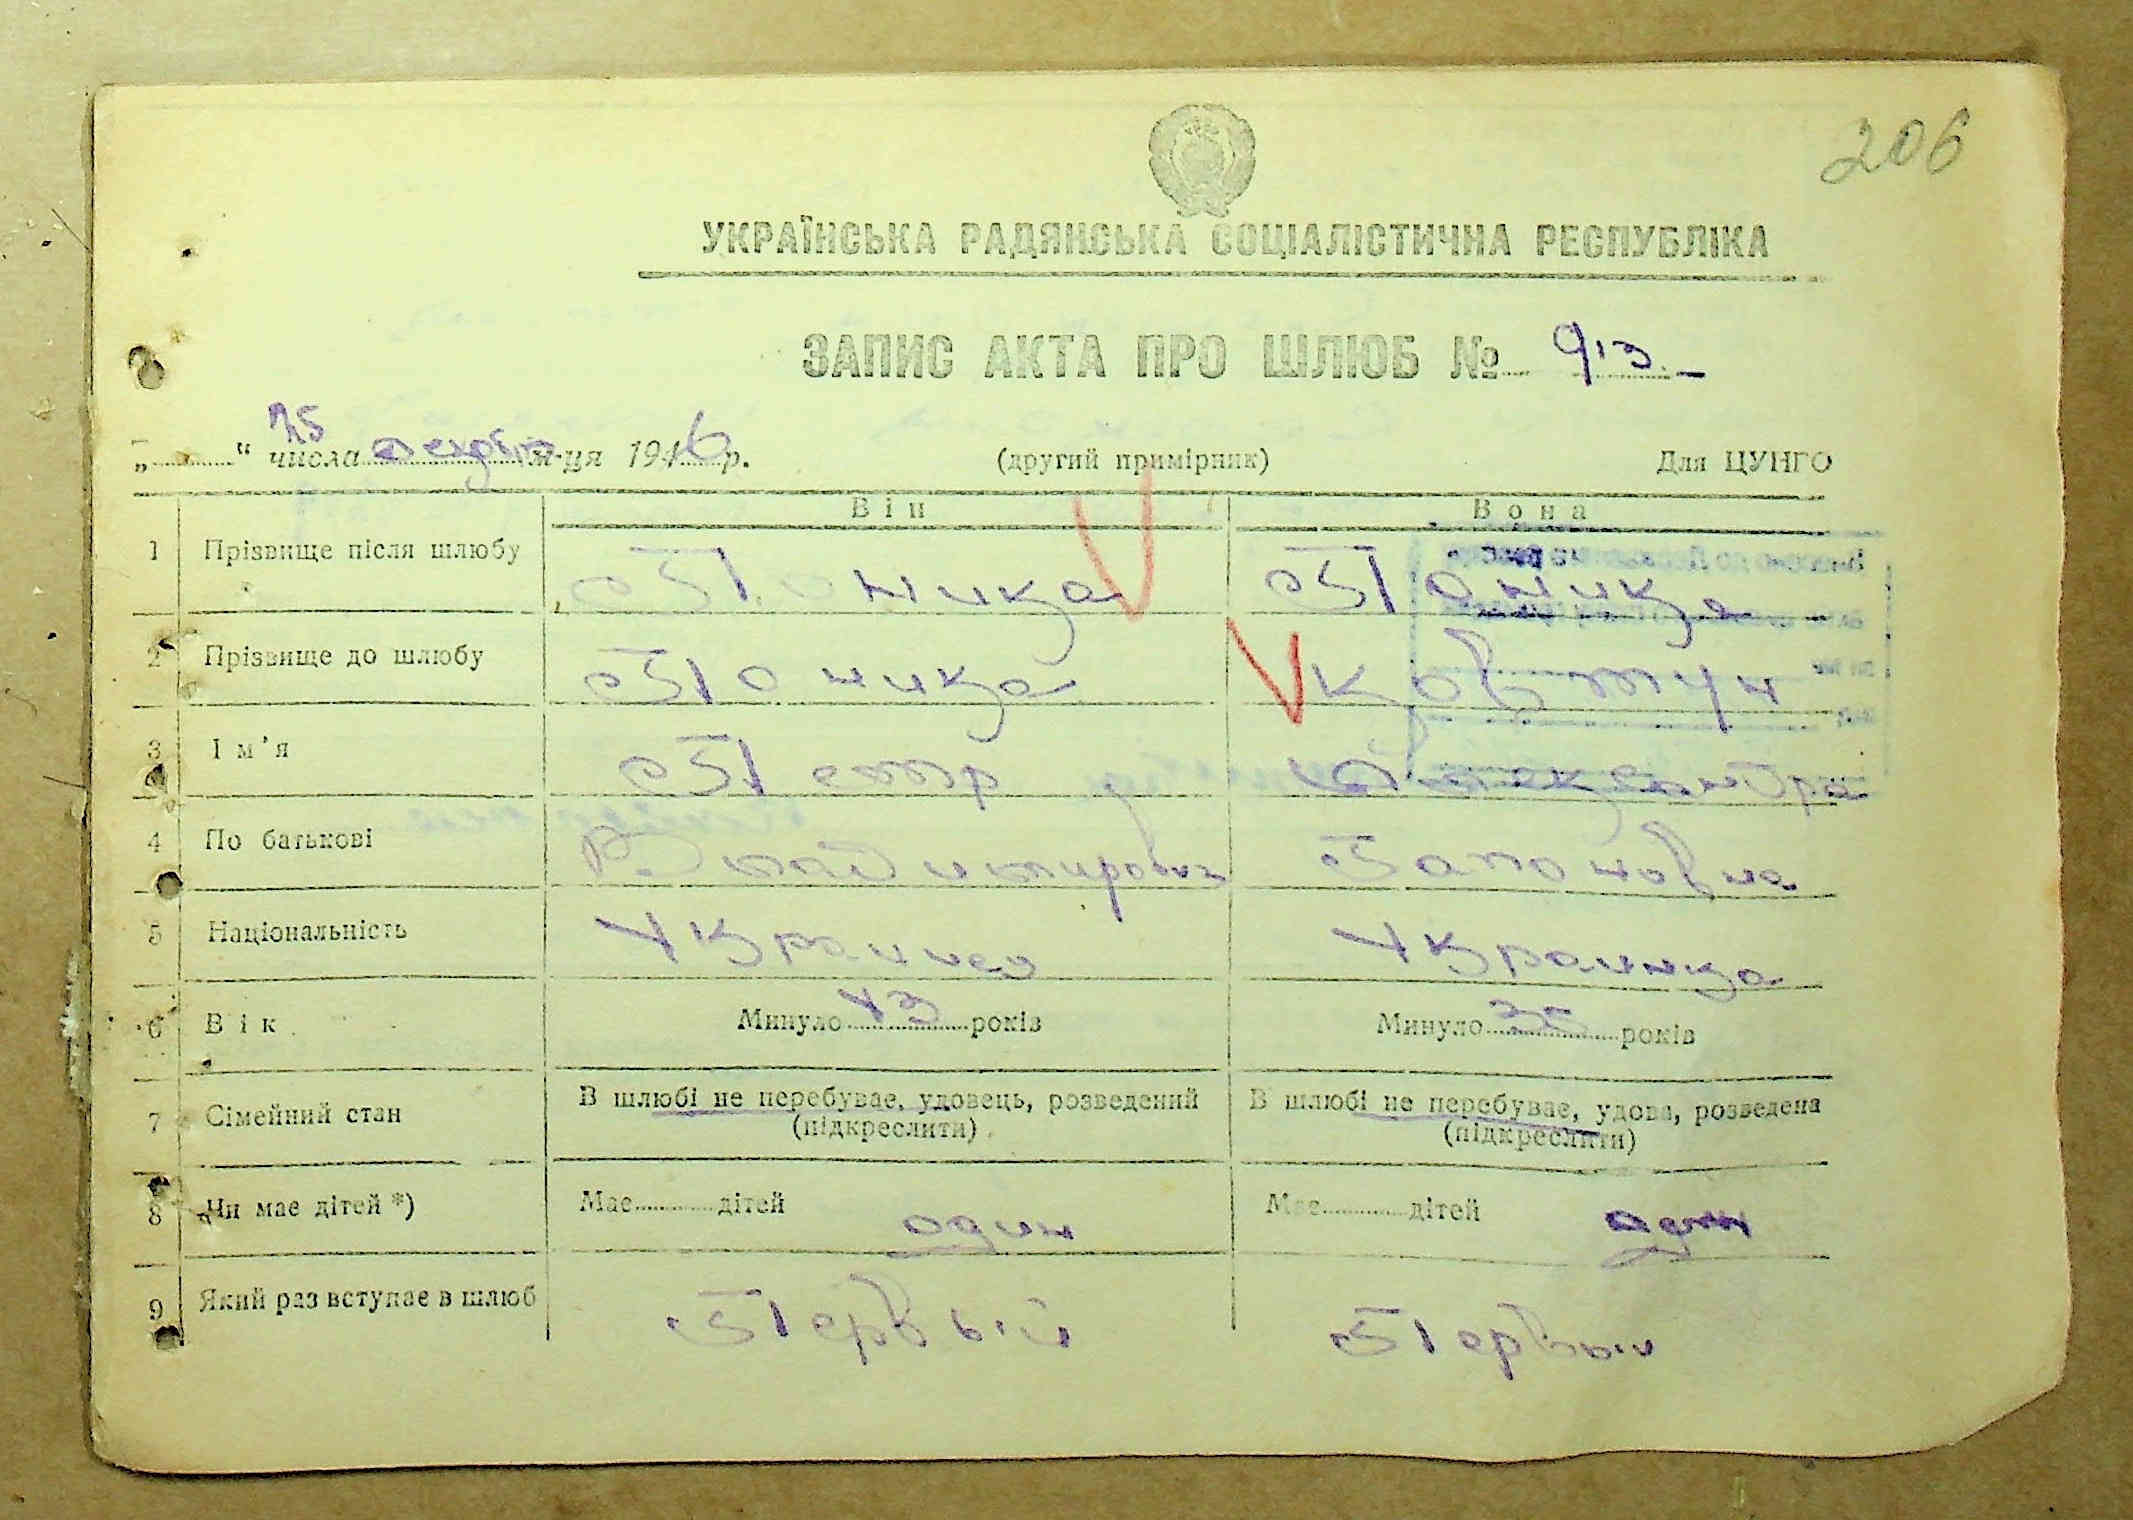 206
УКРАЇНСЬКА РАДЯНСЬКА СОЦІАЛІСТИЧНА РЕСПУБЛІКА
ЗАПИС АКТА ПРО ШЛЮБ № 913.
„ “ 25 числа декабр м-ця 1946 р. (другий примірник) Для ЦУНГО
Він Вона
1 Прізвище після шлюбу Поника Поника
2 Прізвище до шлюбу Поника Ковтун
3 Ім’я Петр Александра
4 По батькові Владимирович Гапоновна
5 Національність Украинец Украинка
6 Вік Минуло 43 років Минуло 35 років
7 Сімейний стан В шлюбі не перебуває, удовець, розведений В шлюбі не перебуває, удова, розведена
(підкреслити) (підкреслити)
8 Чи має дітей *) Має дітей один Має дітей один
9 Який раз вступає в шлюб Первый Первый